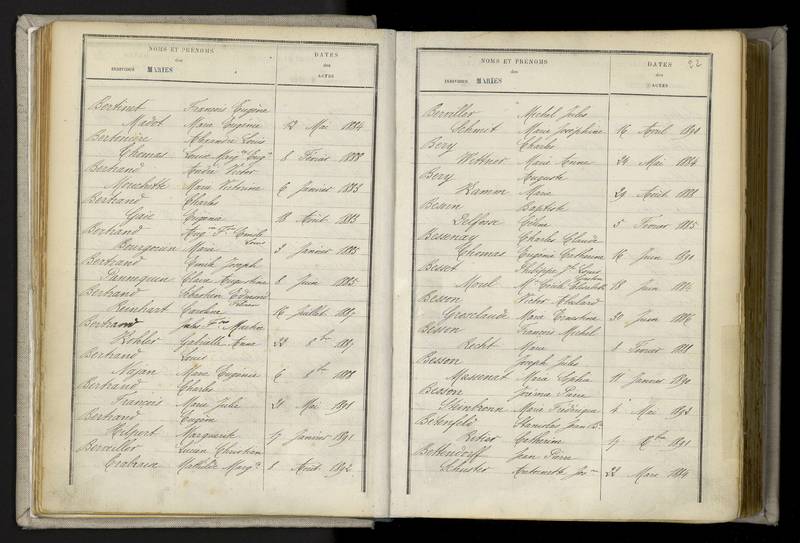 NOMS ET PRÉNOMS
des
INDIVIDUS MARIÉS
DATES
des
ACTES
Bertinet François Eugène
Madot Marie Eugénie 12 Mai 1884
Alexandre Louis
Thomas 8 Février 1888
Bertrand André Victor
Marie Victorine 6 Janvier 1883
Bertrand Charles
Gaie Eugénie 18 Août 1883
Bertrand Aug. Emile
Louis
Bourgouin Marie 3 Janvier 1885
Bertrand Emile Joseph
Pannequin Claire Augustine 8 Juin 1885
Bertrand Sébastien Edmond
Reinhart Caroline 16 Juillet 1887
Bertrand Jules
Kohler Gabrielle Anna 22 8bre 1887
Bertrand Louis
Najan Marie Eugénie 6 8bre 1888
Bertrand Charles
François Marie Julie 21 Mai 1891
Bertrand Eugène
Hilpert Marguerite 17 Janvier 1891
Berviller Lucien Christian
Mathilde Marg. 8 Août 1892
92
NOMS ET PRÉNOMS
des
INDIVIDUS MARIÉS
DATES
des
ACTES
Berviller Michel Jules
Schmit Marie Joséphine 16 Avril 1890
Bery Charles
Wittner Marie Anne 24 Mai 1884
Bery Auguste
Hamm Marie 29 Août 1888
Baptiste
Delfosse Céline 5 Février 1885
Bessenay Charles Claude
Thomas Eugénie Catherine 16 Juin 1890
Besset Philippe Louis
Morel 18 Juin
Besson Victor Abélard
Grosclaude Marie Ernestine 30 Juin 1886
Besson François Michel
Recht Marie 8 Février 1888
Besson Joseph Jules
Massenat Marie Sophie 11 Janvier 1890
Besson Jérémie Pierre
Steinbronn Marie Frédérique Mai 1892
Betenfeld Stanislas Jean Bte
Catherine 17 1891
Bettendorff Jean Pierre
Schuster Antoinette 22 Mars 1884